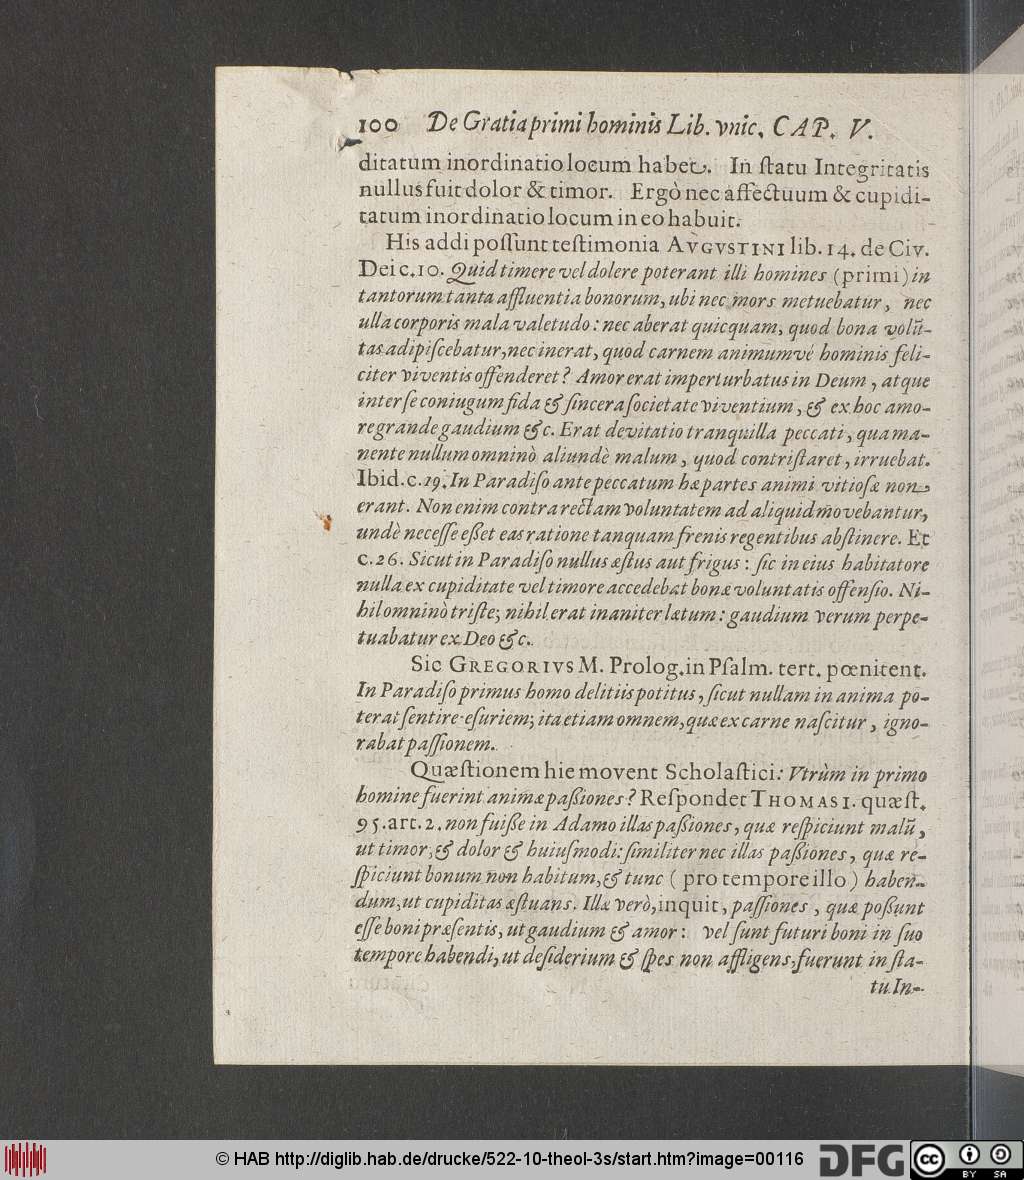 100 De Gratia primi hominis Lib. vnic. CAP. V.
ditatum inordinatio locum habet. In ſtatu Integritatis
nullus fuit dolor & timor. Ergò nec affectuum & cupidi-
tatum inordinatio locum in eo habuit.
His addi poſſunt teſtimonia AVGVSTINI lib. 14. de Civ.
Dei c. 10. Quid timere vel dolere poterant illi homines (primi) in
tantorum tanta affluentia bonorum, ubi nec mors metuebatur, nec
ulla corporis mala valetudo: nec aberat quicquam, quod bona volū-
tas adipiſcebatur, nec inerat, quod carnem animumvé hominis feli-
citer viventis offenderet? Amor erat imperturbatus in Deum, atque
inter ſe coniugum fida & ſincera ſocietate viventium, & ex hoc amo-
re grande gaudium &c. Erat devitatio tranquilla peccati, qua ma-
nente nullum omninò aliundè malum, quod contriſtaret, irruebat.
Ibid. c. 19. In Paradiſo ante peccatum hæ partes animi vitioſæ non
erant. Non enim contra rectam voluntatem ad aliquid movebantur,
undè neceſſe eßet eas ratione tanquam frenis regentibus abſtinere. Et
c. 26. Sicut in Paradiſo nullus æſtus aut frigus: ſic in eius habitatore
nulla ex cupiditate vel timore accedebat bonæ voluntatis offenſio. Ni-
hil omninò triſte; nihil erat inaniter lætum: gaudium verum perpe-
tuabatur ex Deo &c.
Sic GREGORIVS M. Prolog. in Pſalm. tert. pœnitent.
In Paradiſo primus homo delitiis potitus, ſicut nullam in anima po-
terat ſentire eſuriem; ita etiam omnem, quæ ex carne naſcitur, igno-
rabat paſſionem.
Quæſtionem hic movent Scholaſtici: Vtrùm in primo
homine fuerint animæ paßiones? Reſpondet THOMAS I. quæſt.
95. art. 2. non fuiße in Adamo illas paßiones, quæ reſpiciunt malū,
ut timor, & dolor & huiuſmodi: ſimiliter nec illas paßiones, quæ re-
ſpiciunt bonum non habitum, & tunc (pro tempore illo) haben-
dum, ut cupiditas æſtuans. Illæ verò, inquit, paſſiones, quæ poßunt
eſſe boni præſentis, ut gaudium & amor: vel ſunt futuri boni in ſuo
tempore habendi, ut deſiderium & ſpes non affligens, fuerunt in ſta-
tu In-
© HAB http://diglib.hab.de/drucke/522-10-theol-3s/start.htm?image=00116
DFG
cc BY SA